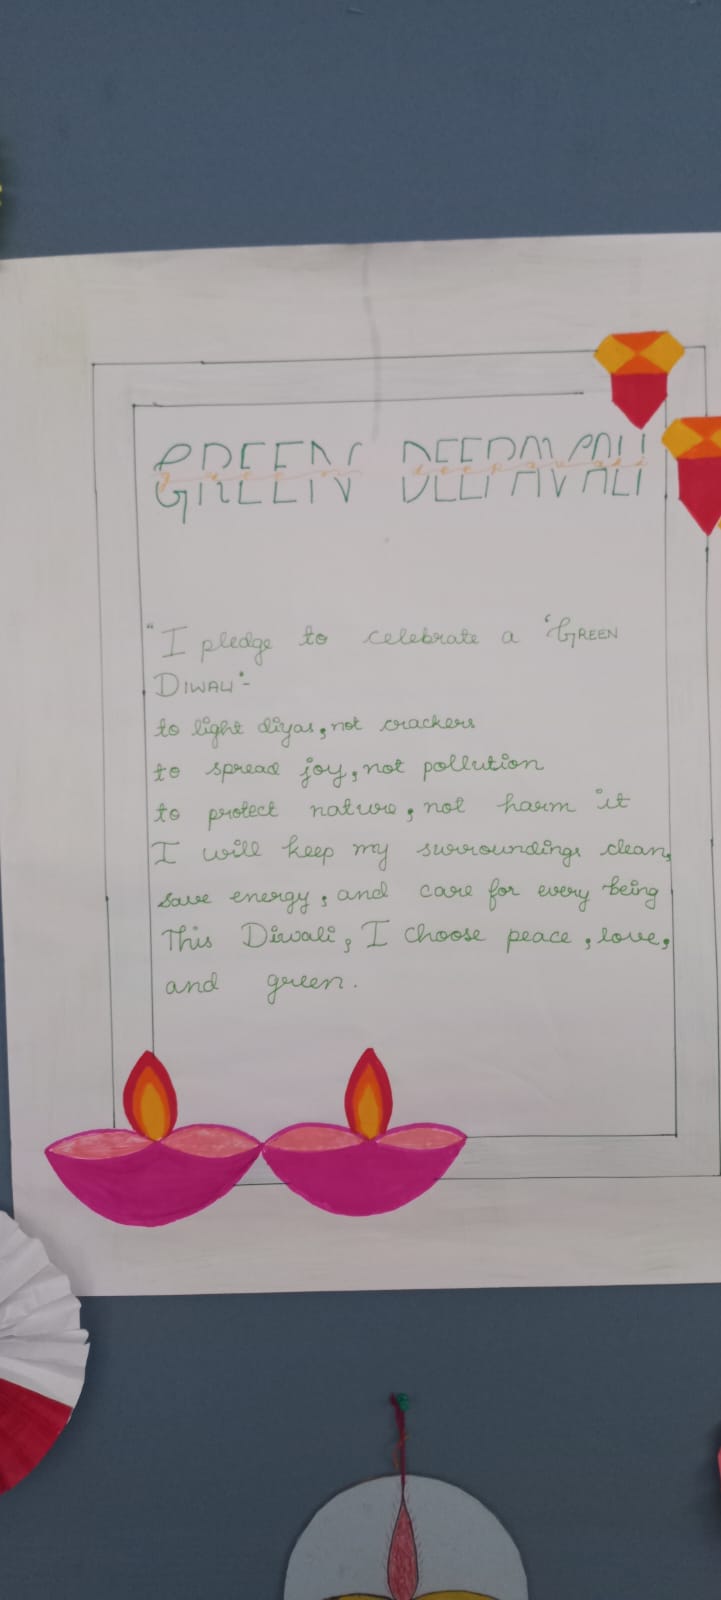 GREEN DEEPAVALI
green deepavali
"I pledge to celebrate a 'GREEN
DIWALI'-
to light diyas, not crackers
to spread joy, not pollution
to protect nature, not harm it
I will keep my surroundings clean,
save energy, and care for every being
This Diwali, I choose peace, love,
and green.